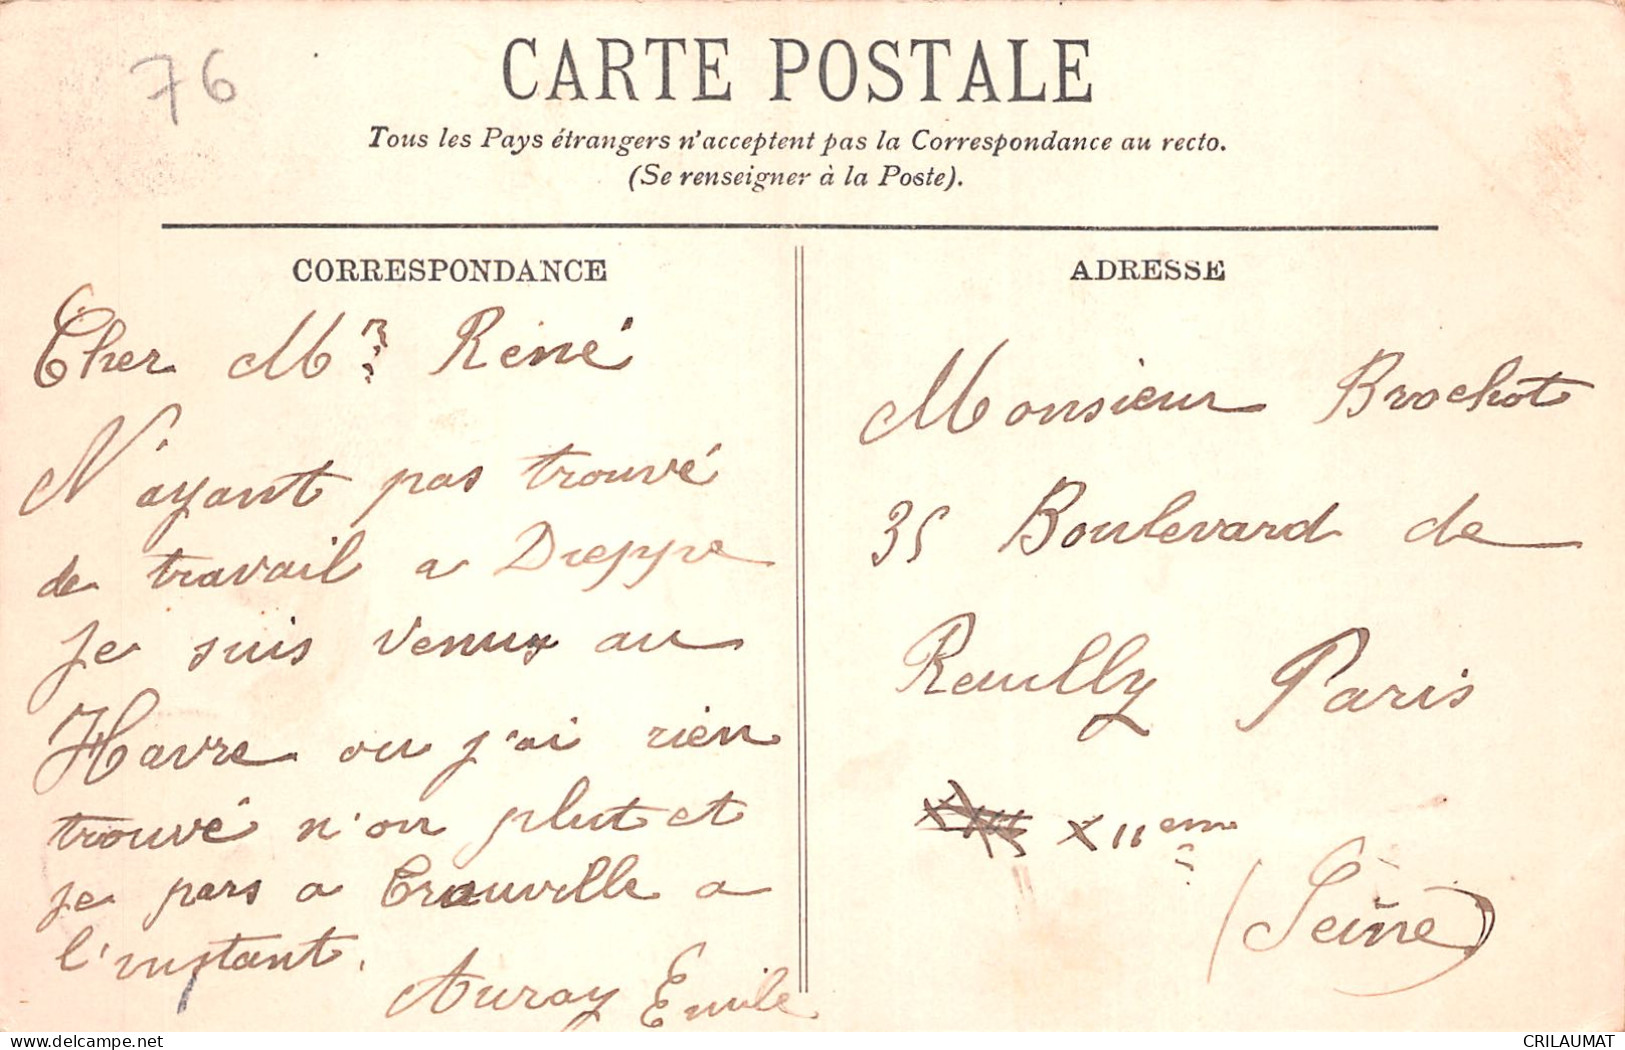 76
CARTE POSTALE
Tous les Pays étrangers n'acceptent pas la Correspondance au recto.
(Se renseigner à la Poste).
CORRESPONDANCE
Cher Mr René
N'ayant pas trouvé
de travail a Dieppe
je suis venus au
Havre ou j'ai rien
trouvé n'on plut et
je pars a Trouville a
l'instant.
Auray Emile
ADRESSE
Monsieur Brochot
35 Boulevard de
Reuilly Paris
XIIeme
(Seine)
CRILAUMAT